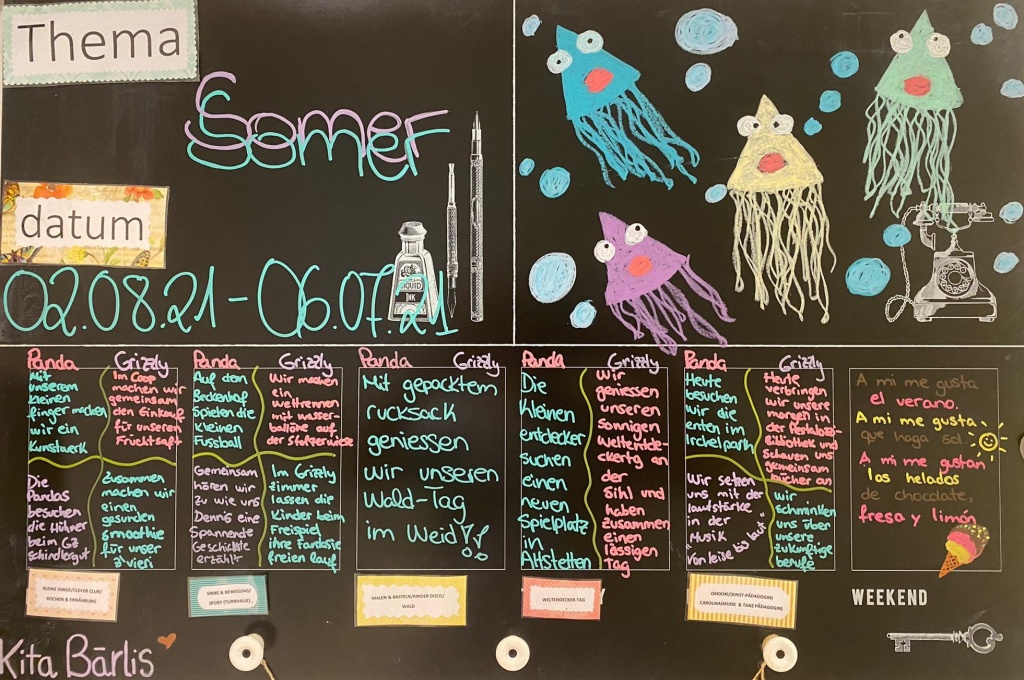 Thema
Somer
datum
02.08.21 - 06.07.21
LIQUID
INK
Panda
Mit
unserem
kleinen
finger machen
wir ein
Kunstwerk
Grizzly
Im Coop
machen wir
gemeinsam
den Einkauf
für unseren
Früchtsaft
Die
Pandas
besuchen
die Hühner
beim GZ
schindlergut
zusammen
machen wir
einen
gesunden
Smoothie
für unser
z'vieri
Panda
Auf den
Beckenhof
Spielen die
Kleinen
Fussball
Grizzly
Wir machen
ein
wettrennen
mit wasser-
ballone auf
der Stolzewiese
Gemeinsam
hören wir
zu wie uns
Dennis eine
Spannende
Geschichte
erzählt
Im Grizzly
zimmer
lassen die
Kinder beim
Freispiel
ihre Fantasie
freien lauf
Panda Grizzly
Mit gepacktem
rucksack
geniessen
wir unseren
Wald-Tag
im Weid!!
Panda
Die
Kleinen
entdecker
suchen
einen
neuen
Spielplatz
in
Altstetten
Grizzly
Wir
geniessen
unseren
sonnigen
der
Sihl und
haben
zusammen
einen
lässigen
Tag
Panda
Heute
besuchen
wir die
enten im
Irchelpark
Grizzly
Heute
verbringen
wir unsere
morgen in
der Pestalozzi
Bibliothek und
Schauen uns
gemeinsam
bücher an
Wir setzen
uns mit der
lautstärke
in der
Musik
"von leise bis laut"
wir
schminken
uns über
unsere
zukünftige
berufe
A mi me gusta
el verano.
A mi me gusta
que haga sol
A mi me gustan
los helados
de chocolate,
fresa y limón
KLEINE DINGE/CLEVER CLUB/
KOCHEN & ERNÄHRUNG
SINNE & BEWEGUNG/
SPORT (TURNHALLE)
MALEN & BASTELN/KINDER DISCO/
WALD
WELTENDECKER-TAG
OKIDOKI (KUNST-PÄDAGOGIN)
CAROLINA(MUSIK & TANZ PÄDAGOGIN)
WEEKEND
Kita Bärlis